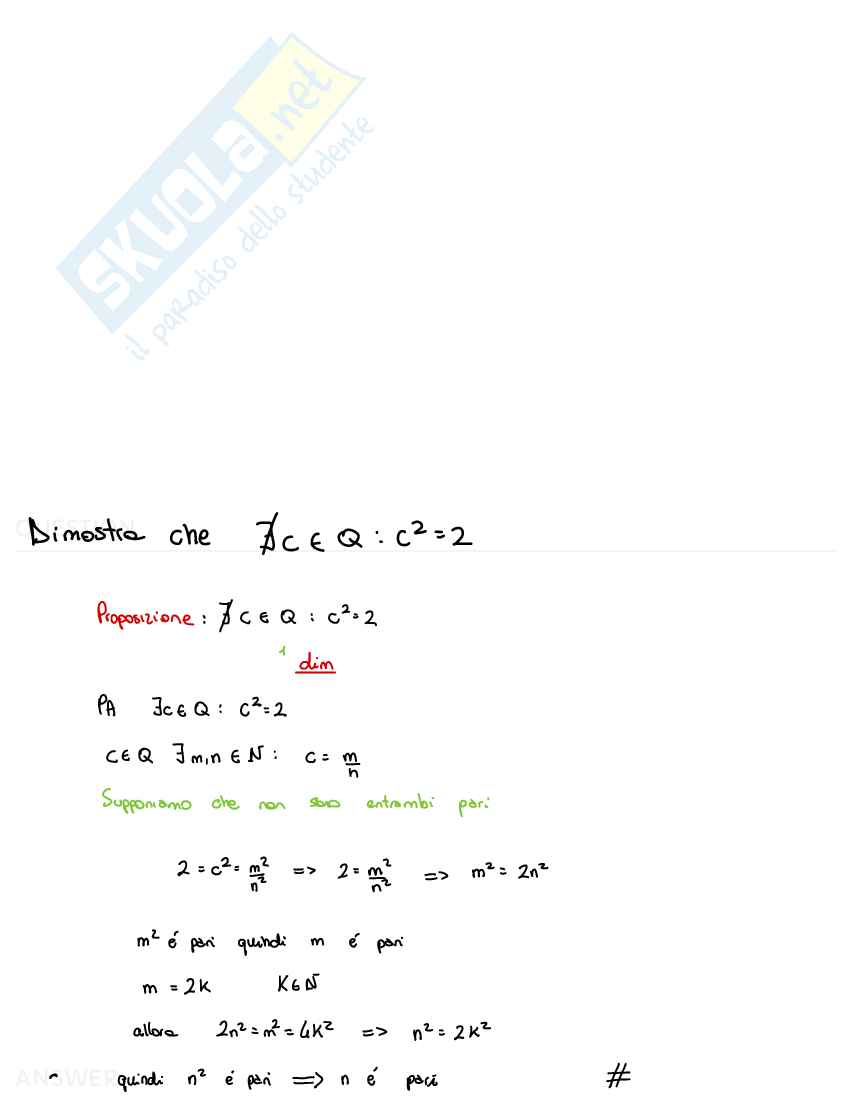 SKUOLA.net
il paradiso dello studente
QUESTION
Dimostra che ∄ c ∈ Q : c² = 2
Proposizione : ∄ c ∈ Q : c² = 2
1
dim
PA ∃ c ∈ Q : c² = 2
c ∈ Q ∃ m, n ∈ N : c = m/n
Supponiamo che non sono entrambi pari
2 = c² = m²/n² => 2 = m²/n² => m² = 2n²
m² é pari quindi m é pari
m = 2K K ∈ N
allora 2n² = m² = 4K² => n² = 2K²
ANSWER
quindi n² é pari => n é pari #